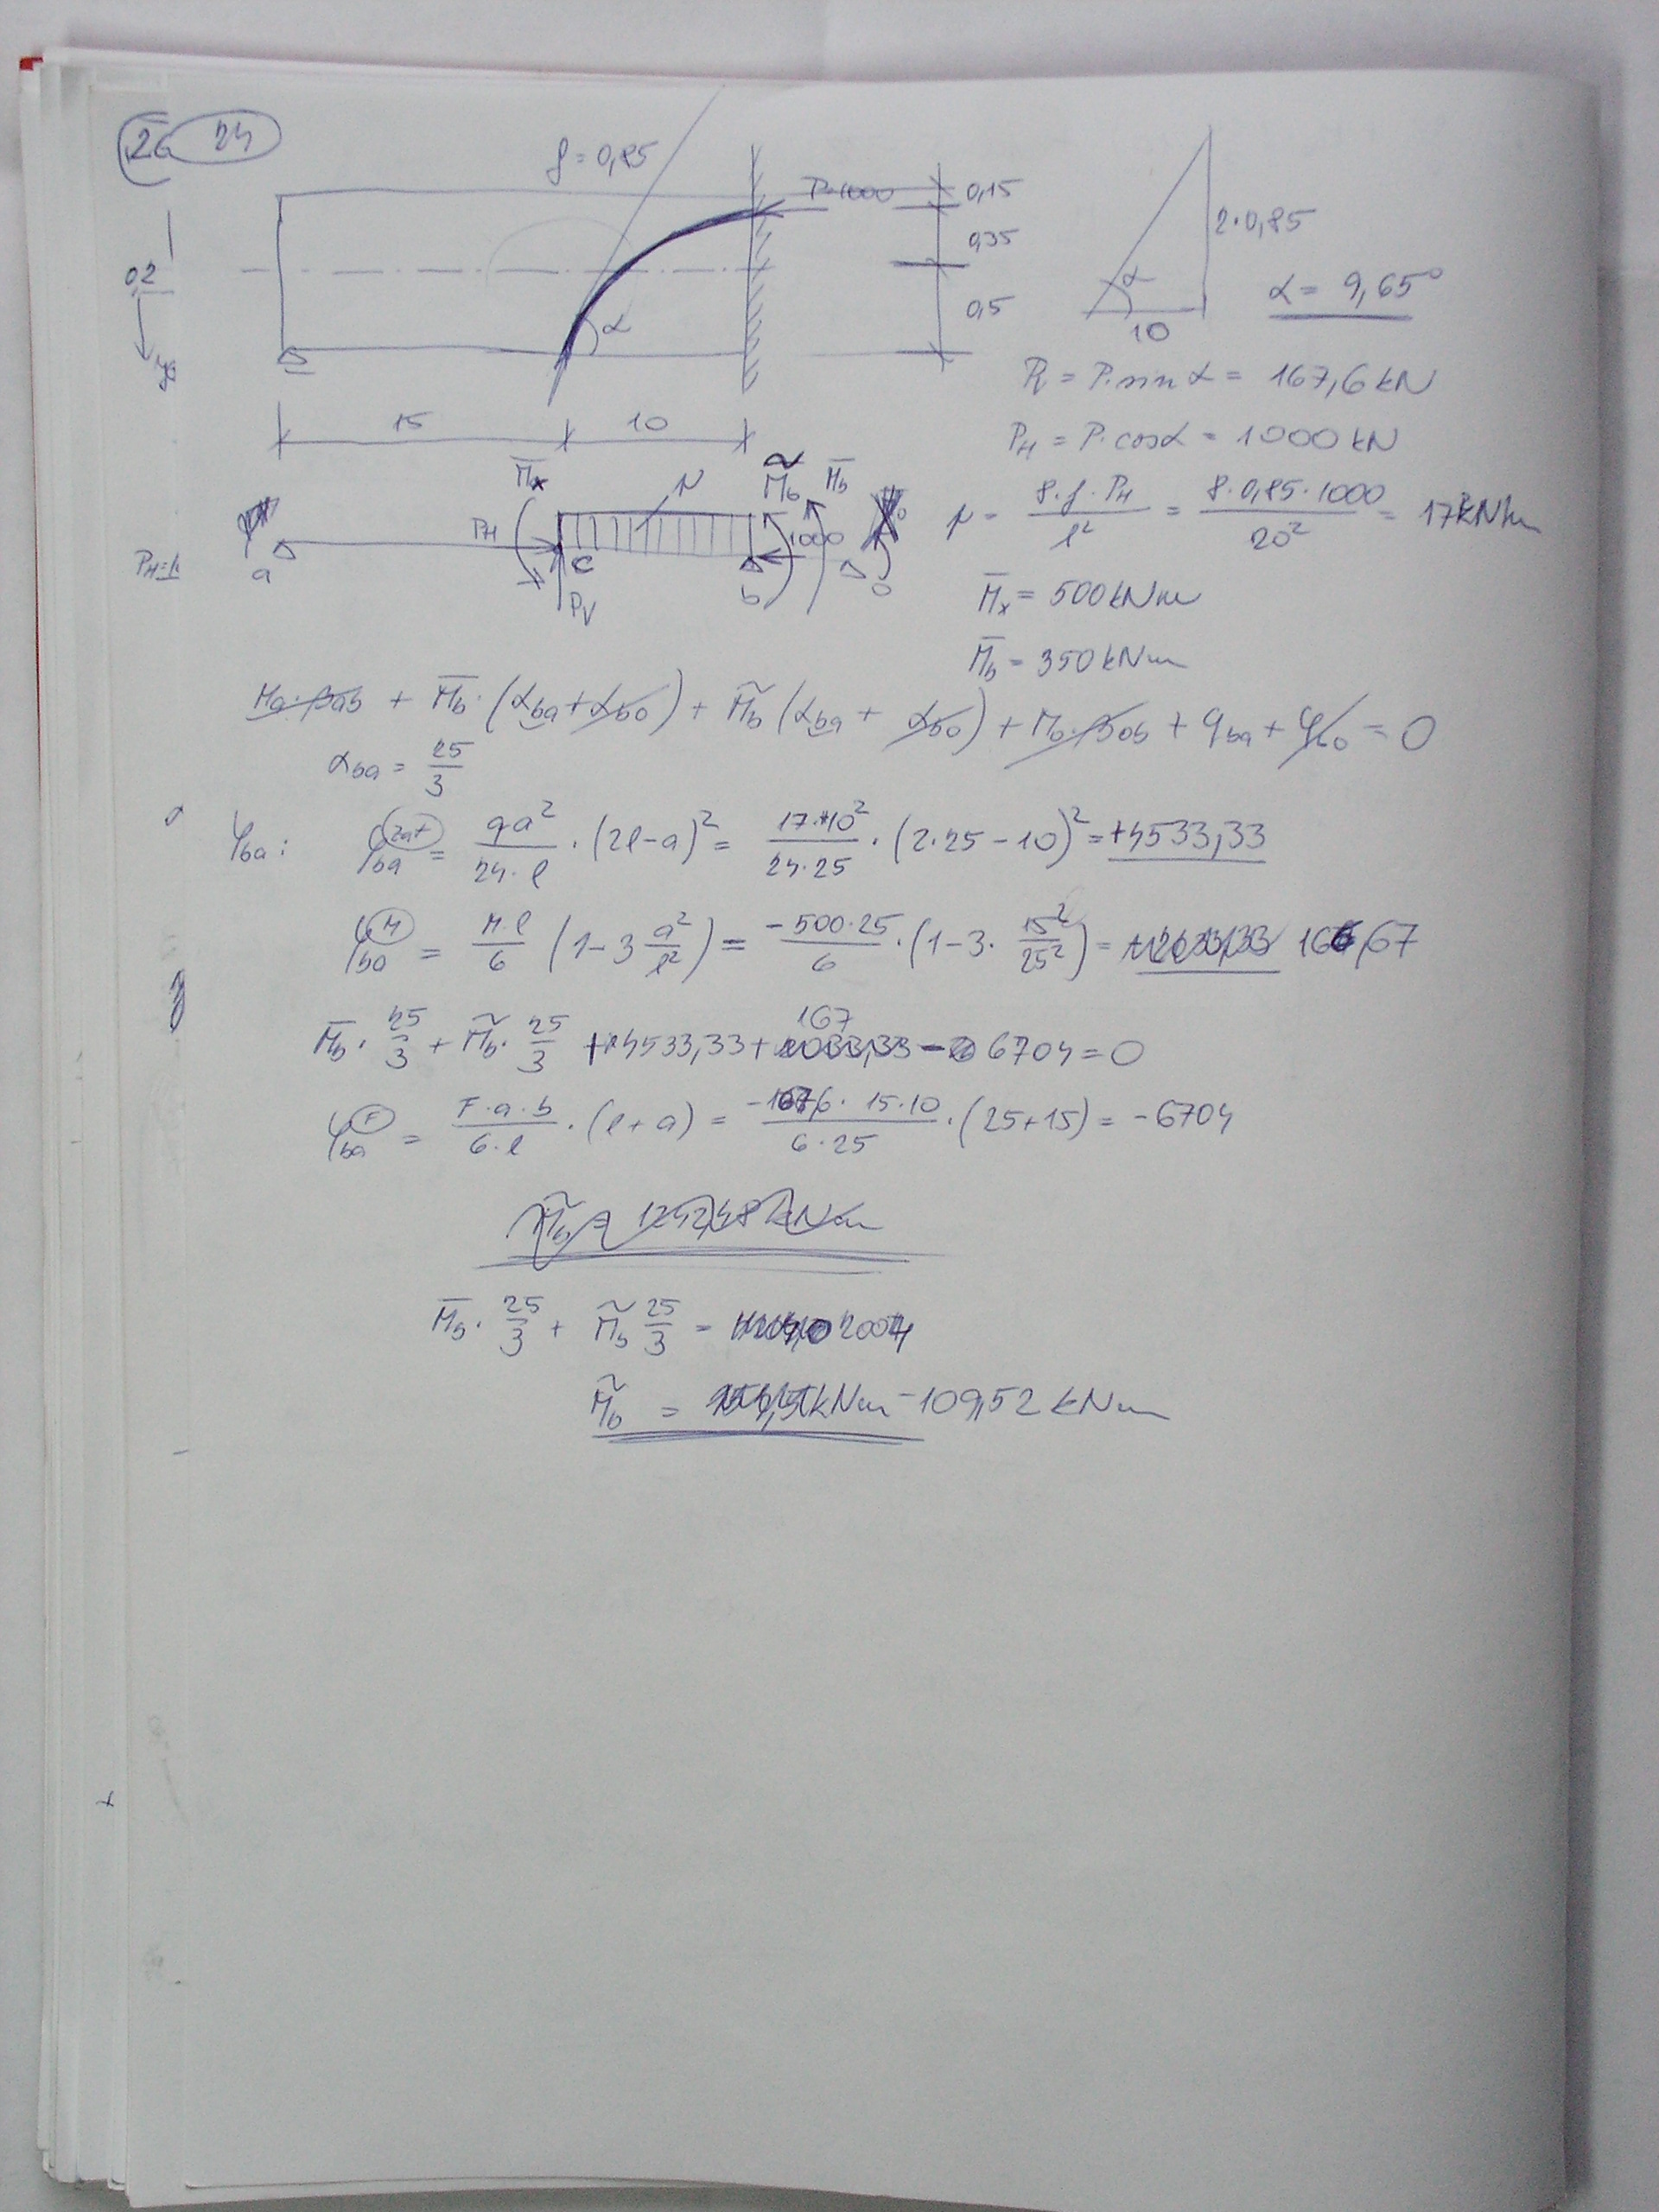 24
f = 0,85
P=1000
0,15
0,35
0,5
0,2
α
15
10
α
2·0,85
10
α = 9,65°
P = P·sin α = 167,6 kN
P_H = P·cosα = 1000 kN
M̄x
N
M̃b
M̄b
P_H
1000
a
c
b
P_V
p = 8·f·P_H / l² = 8·0,85·1000 / 20² = 17kN/m
M̄x = 500kNm
M̄b = 350kNm
Ma·βab + M̄b·(αba+αbo) + M̃b(αba + αbo) + Mo·βob + φba + φbo = 0
αba = 25/3
φba: φba = qa²/24·l · (2l-a)² = 17·10²/24·25 · (2·25-10)² = +4533,33
φba (M) = M·l/6 (1-3 a²/l²) = -500·25/6 · (1-3· 15²/25²) = 166,67
M̄b· 25/3 + M̃b· 25/3 + 4533,33 + 167 - 6704 = 0
φba (F) = F·a·b/6·l · (l+a) = -167,6· 15·10/6·25 · (25+15) = -6704
M̄b· 25/3 + M̃b 25/3 = 2004
M̃b = -109,52 kNm